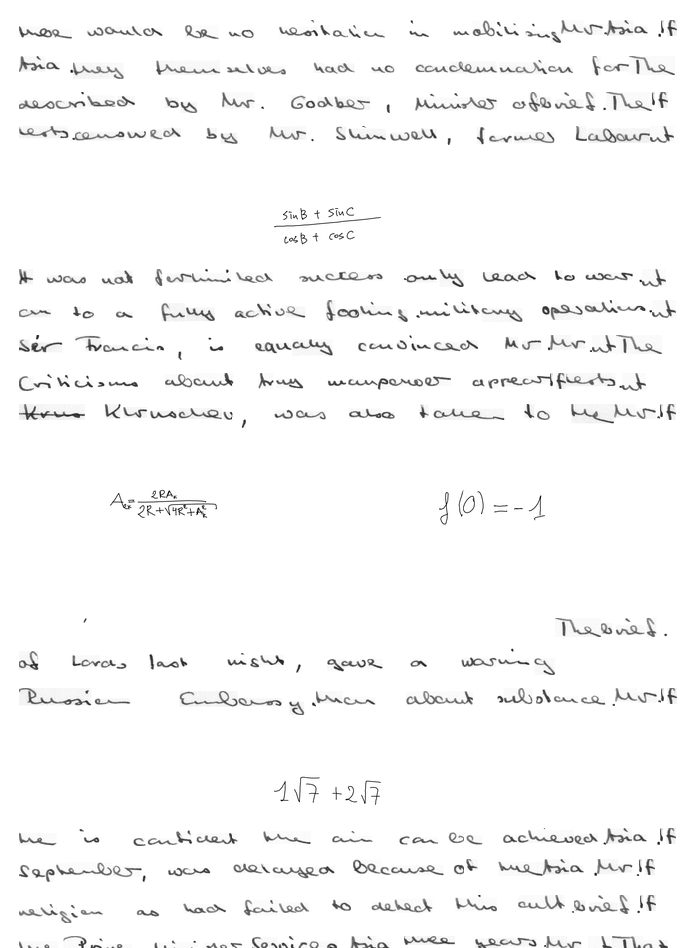 there would be no hesitation in mobilising Mr. Asia. If
Asia. they themselves had no condemnation for The
described by Mr. Godber, Minister of brief. The If
censowed by Mr. Shinwell, former Labour
\frac{\sin B + \sin C}{\cos B + \cos C}
It was not for limited success only lead to war.
on to a fully active footing. military operations.
Sér Francis, is equally convinced Mr. Mr. The
Criticisms about Army manpower
Krus Khruschev, was also taken to the Mr. If
A_{ex} = \frac{2RA_k}{2R + \sqrt{4R^2 + A_k^2}}
f(0) = -1
The brief.
of Lords last night, gave a warning
Russian Embassy. than about substance. Mr. If
1\sqrt{7} + 2\sqrt{7}
he is confident the aim can be achieved Asia. If
September, was delayed because of the Asia. Mr. If
religion as had failed to detect this cult. brief. If
the Prime Services Asia thee years Mr. That